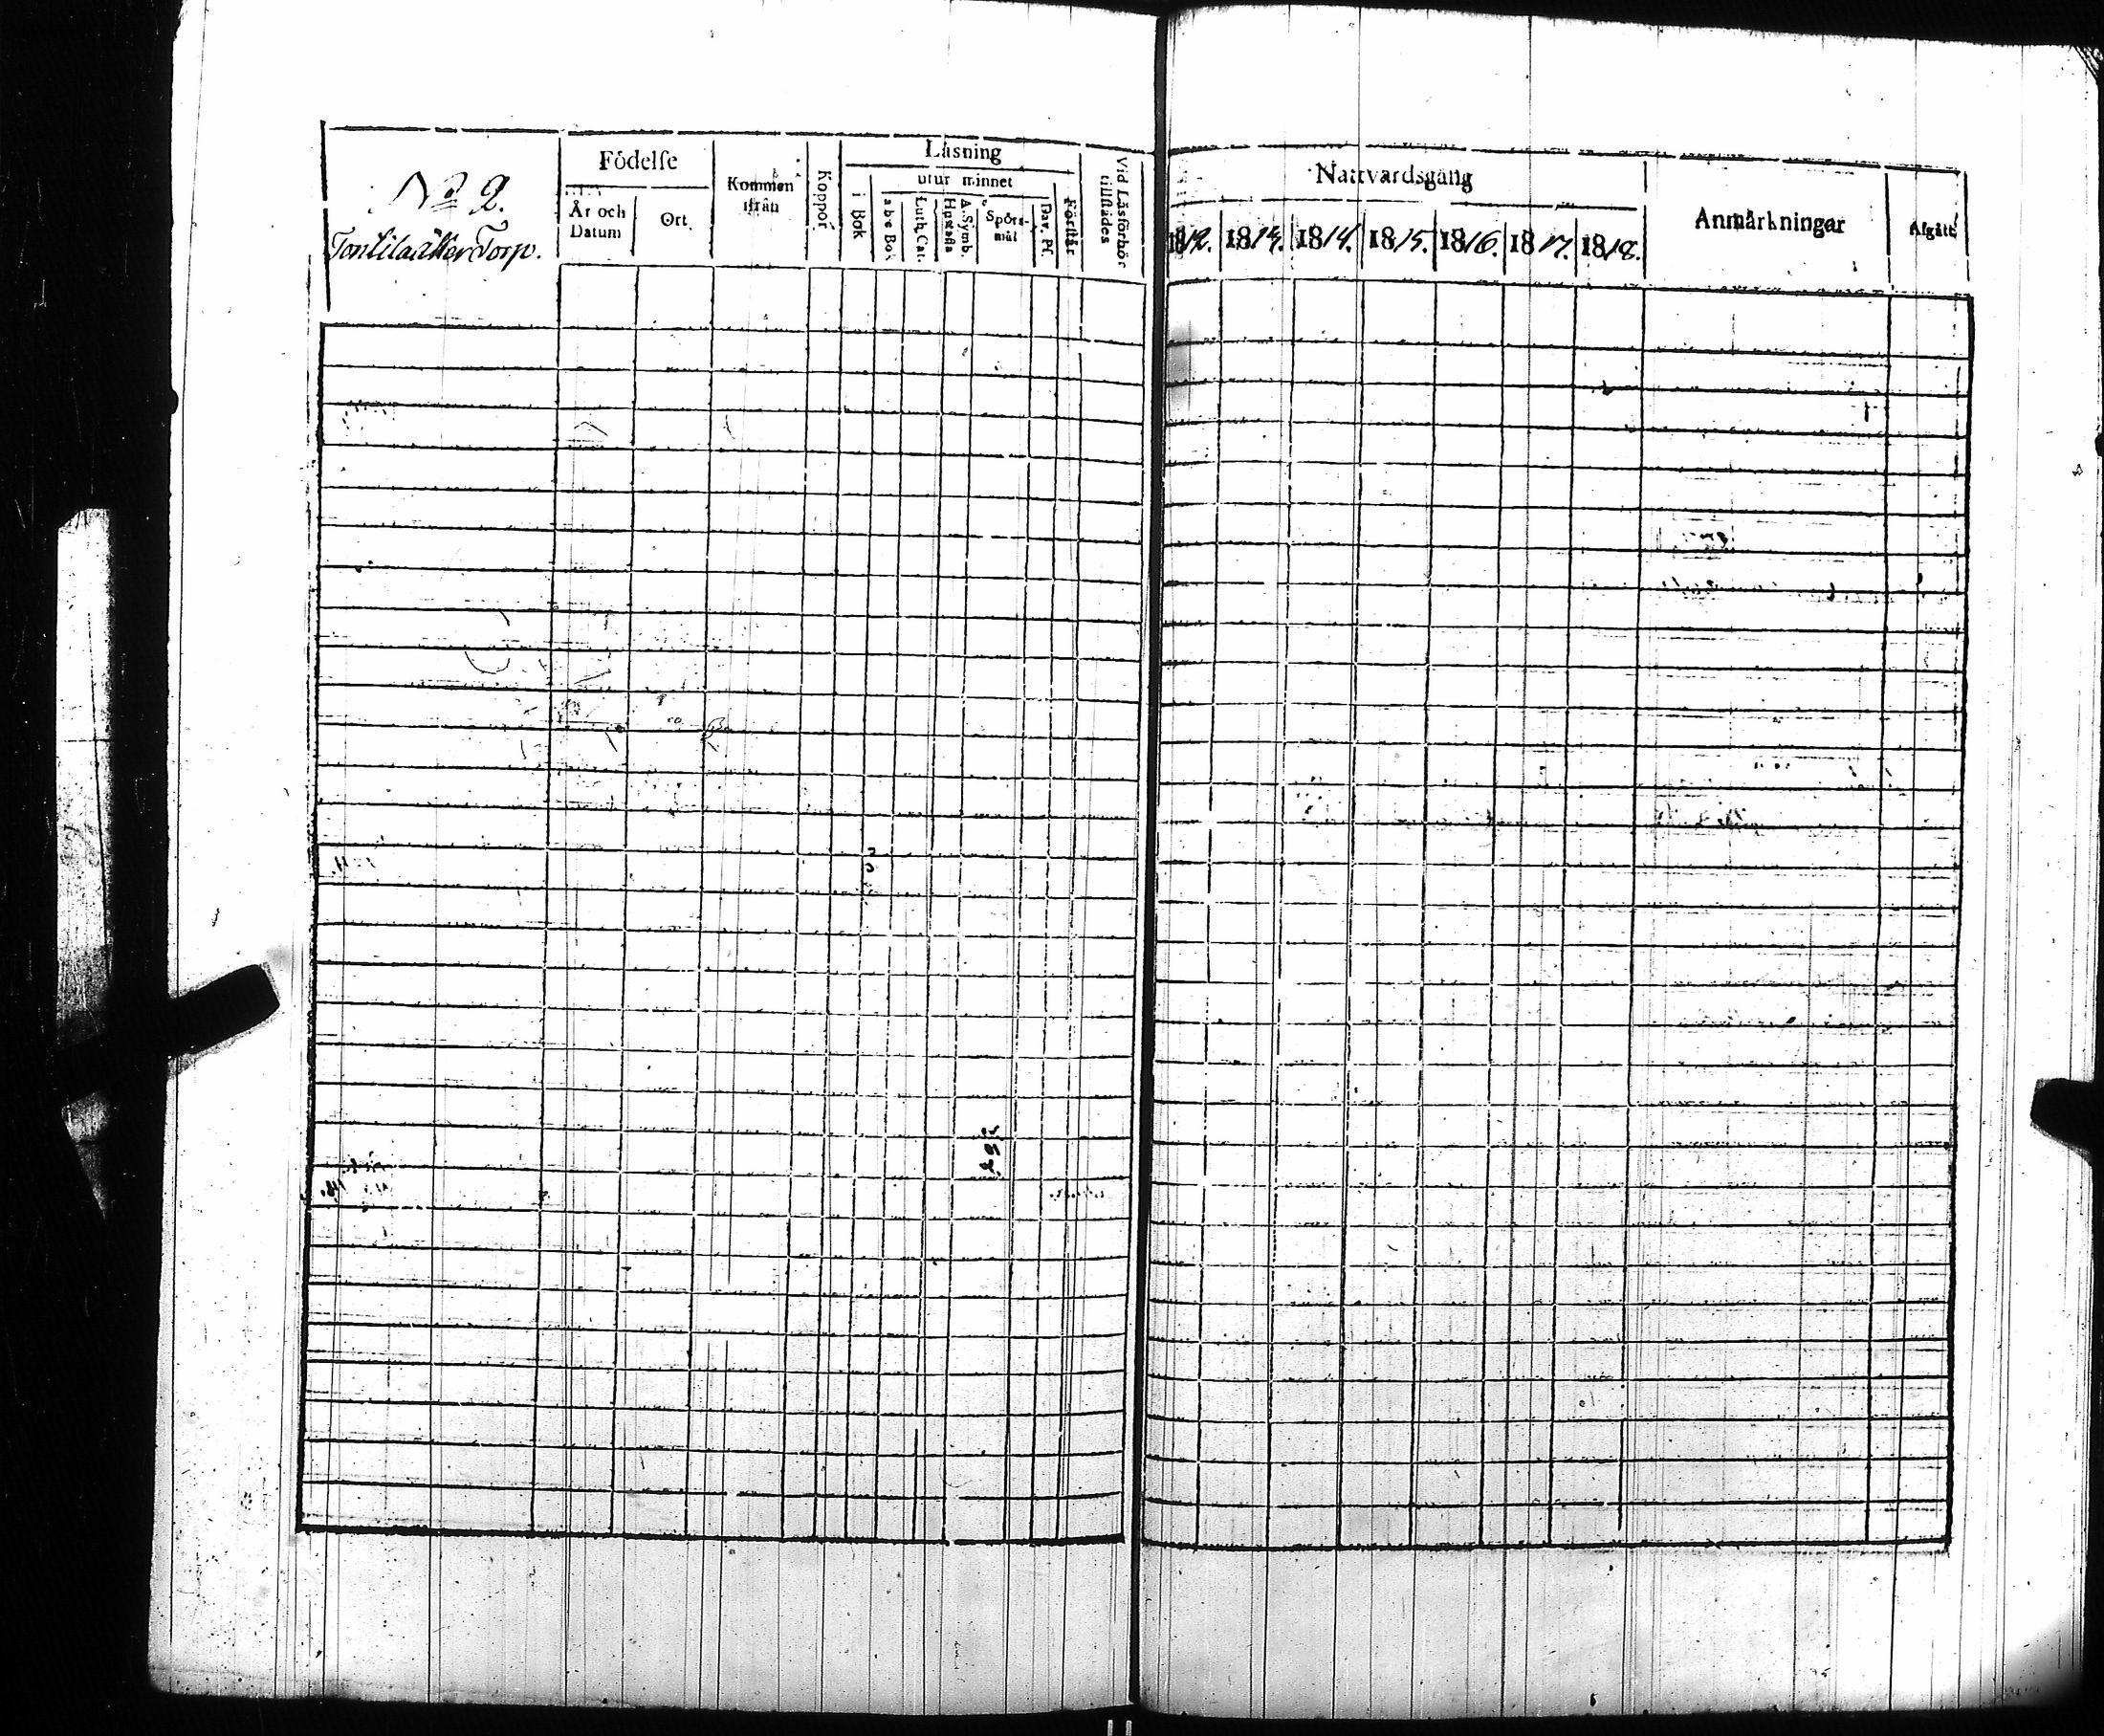 No 2.
Torp.
Födelse
År och Datum
Ort
Kommen ifrån
Koppor
Läsning
i Bok
utur minnet
abc Bok
Luth. Cat.
Hustafla
A. Symb.
Spörsmål
Dav. Ps.
Förstår
Vid Läsförhör tillstädes
Nattvardsgång
1812. 1813. 1814. 1815. 1816. 1817. 1818.
Anmärkningar
Afgått